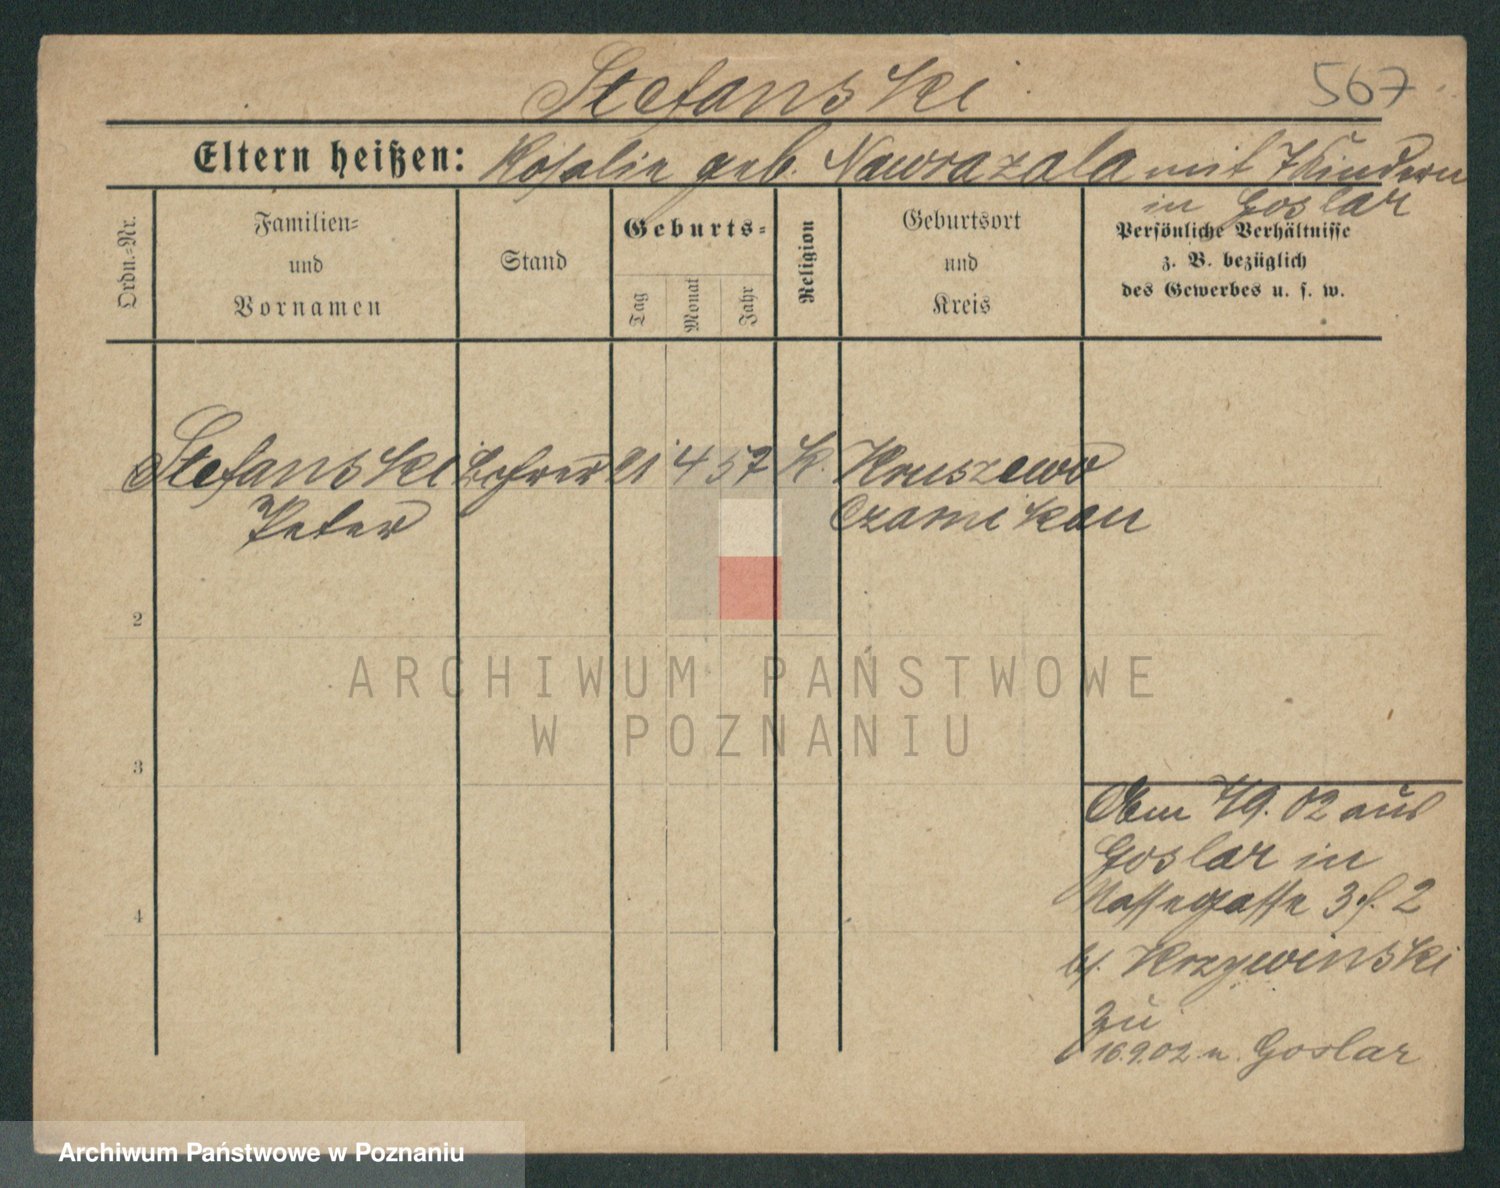 Stefanski
567
Eltern heißen: Rosalie geb. Nawrazala mit 7 Kindern
in Goslar
Ordn.-Nr.
Familien-
und
Vornamen
Stand
Geburts-
Tag
Monat
Jahr
Religion
Geburtsort
und
Kreis
Persönliche Verhältnisse
z. B. bezüglich
des Gewerbes u. s. w.
Stefanski Lehrer 21 4 57 K. Kruszewo
Peter
Czarnikau
2
3
4
Am 7/9. 02 aus
Goslar in
3
2
bei Krzywinski
zu
16.9.02 n. Goslar
ARCHIWUM PAŃSTWOWE
W POZNANIU
Archiwum Państwowe w Poznaniu